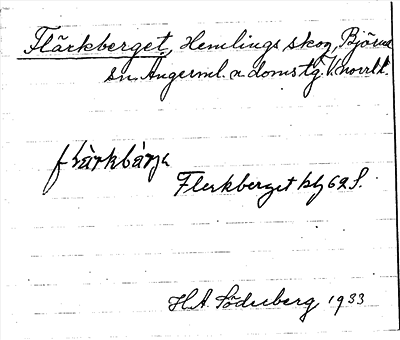 Flärkberget, Hemlings skog, Björna
sn. Ångerml. a domstg. V.norrl.l.
flärkbärja
Flerkberget kbg 62 S.
H A Söderberg 1933